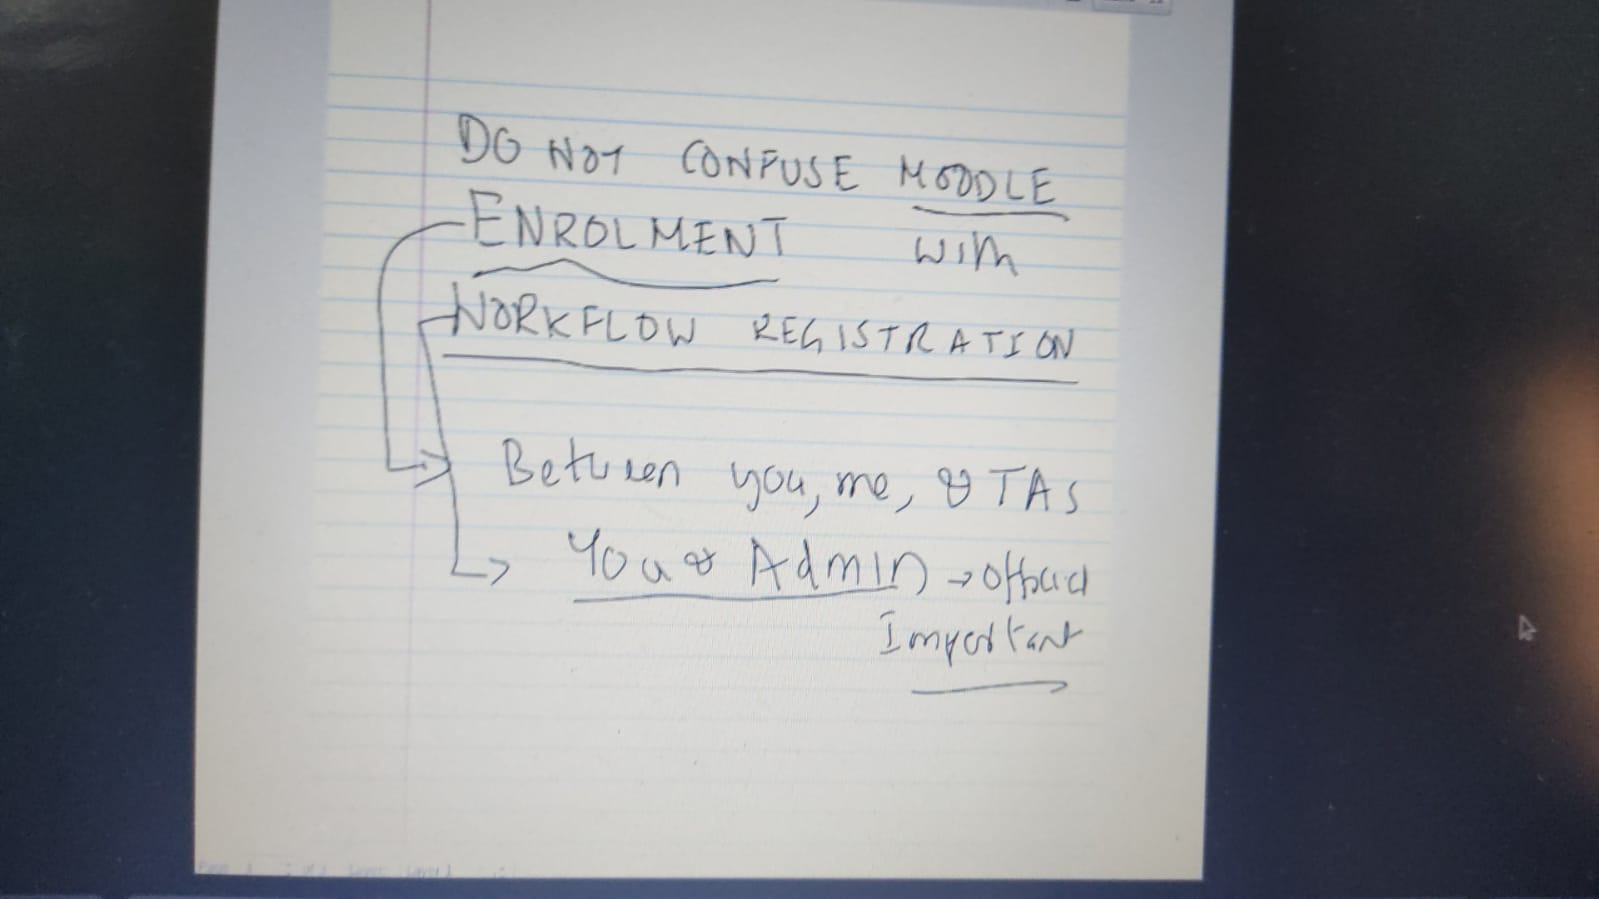 DO NOT CONFUSE MOODLE
ENROLMENT with
WORKFLOW REGISTRATION
Between you, me, & TAS
You & Admin → official
Important